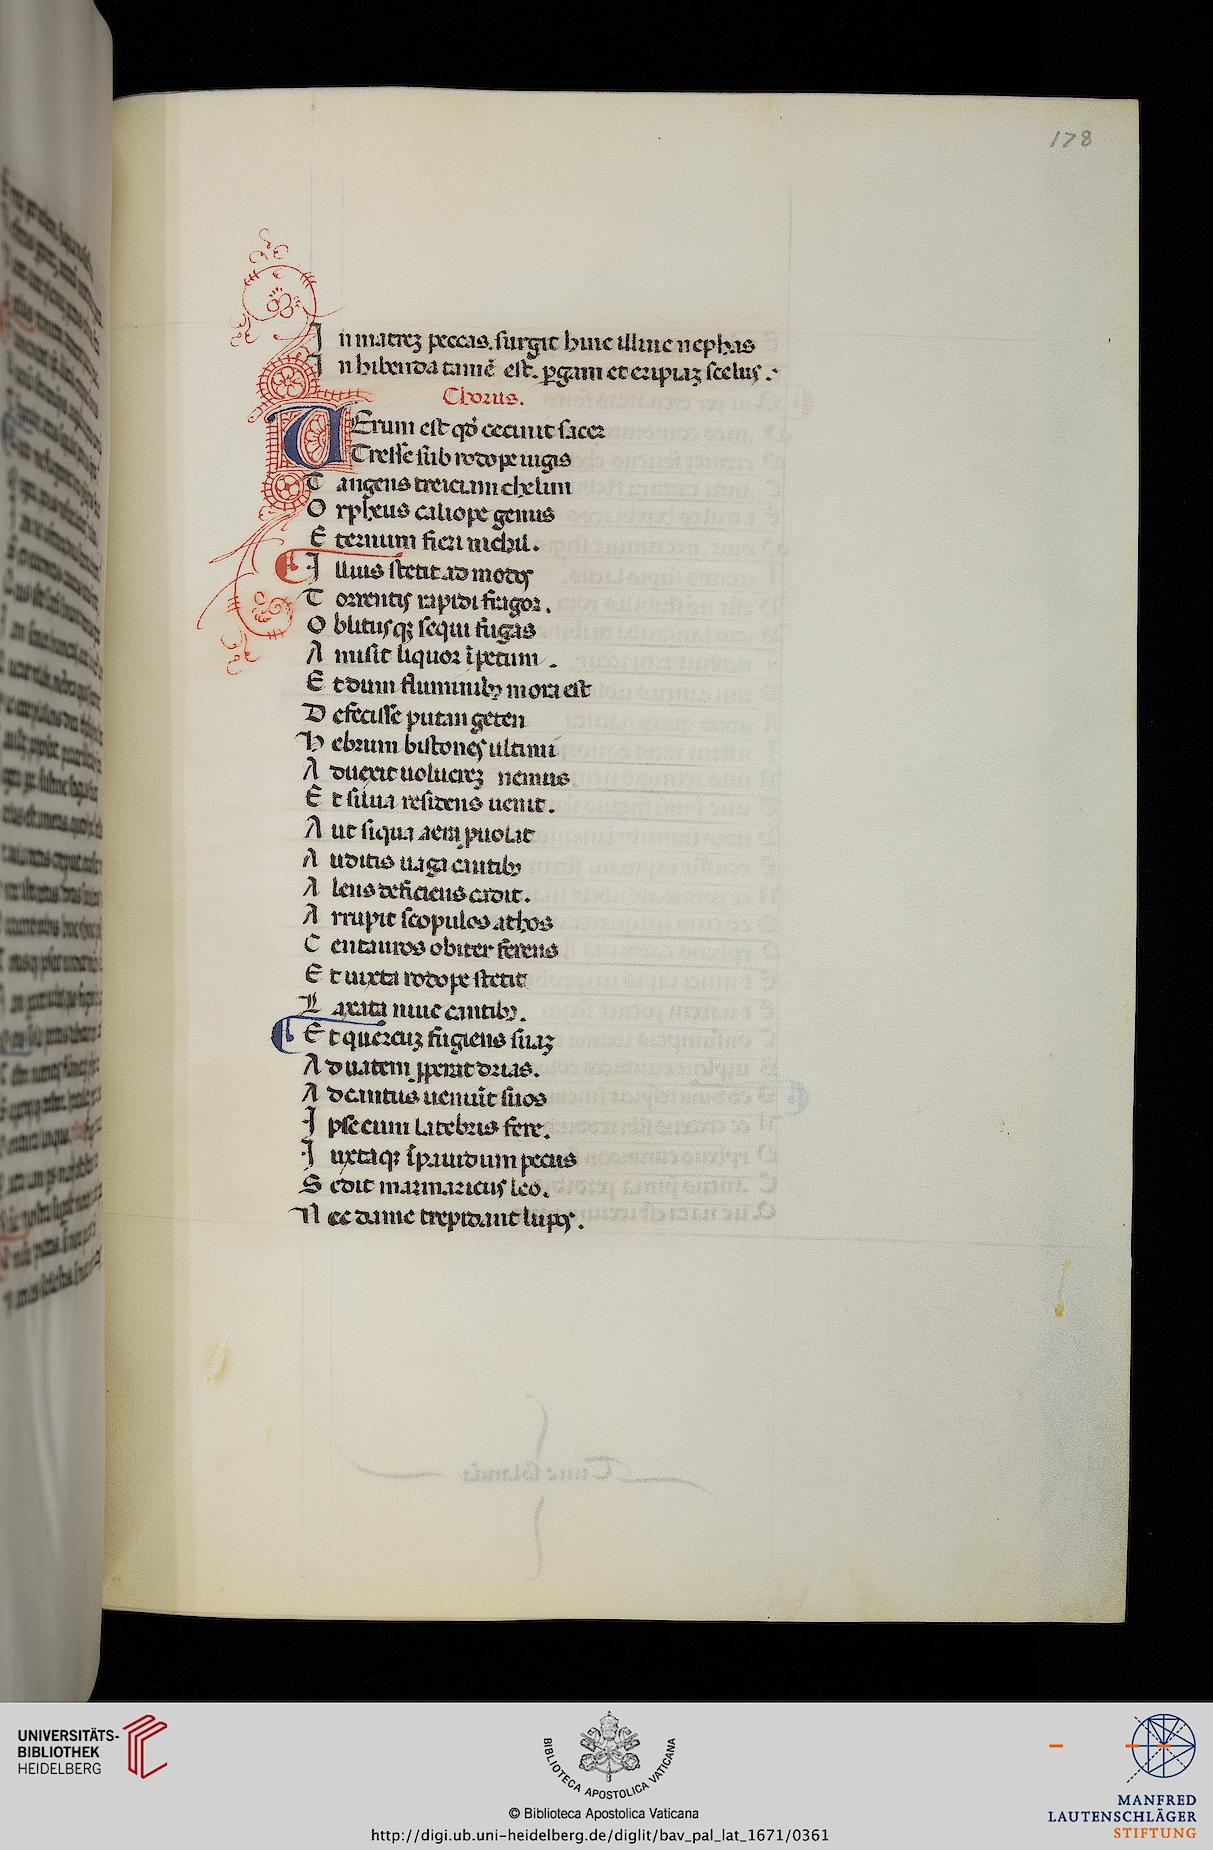 178
I n matreʒ peccas. surgit hinc illinc nephas
I n hibenda tamē est. ꝑgam et eripiaʒ scelus.
Chorus.
UErum est qđ cecinit sacer
Tresse sub rodope iugis
T angens treiciam chelim
O rpheus caliope genus
E ternum fieri nichil.
I llius stetit ad modos
T orrentis rapidi fragor.
O blitusqʒ sequi fugas
A misit liquor īpetum.
E t dum fluminibꝫ mora est
D efecisse putan geten
H ebrum bistones ultimi
A duexit uolucreʒ nemus
E t silua residens uenit.
A ut siqua aera ꝑuolat
A uditis uaga cantibꝫ
A lens deficiens cadit.
A rrupit scopulos athos
C entauros obiter ferens
E t iuxta rodope stetit
L axata niue cantibꝫ.
E t quercuʒ fugiens suaʒ
A d uatem ꝓperat drias.
A d cantus ueniūt suos
I pse cum latebris fere.
I uxtaqʒ īpauidum pecus
S edit marmaricus leo.
N ec dame trepidant lupos.
UNIVERSITÄTS-
BIBLIOTHEK
HEIDELBERG
BIBLIOTECA APOSTOLICA VATICANA
© Biblioteca Apostolica Vaticana
http://digi.ub.uni-heidelberg.de/diglit/bav_pal_lat_1671/0361
MANFRED
LAUTENSCHLÄGER
STIFTUNG